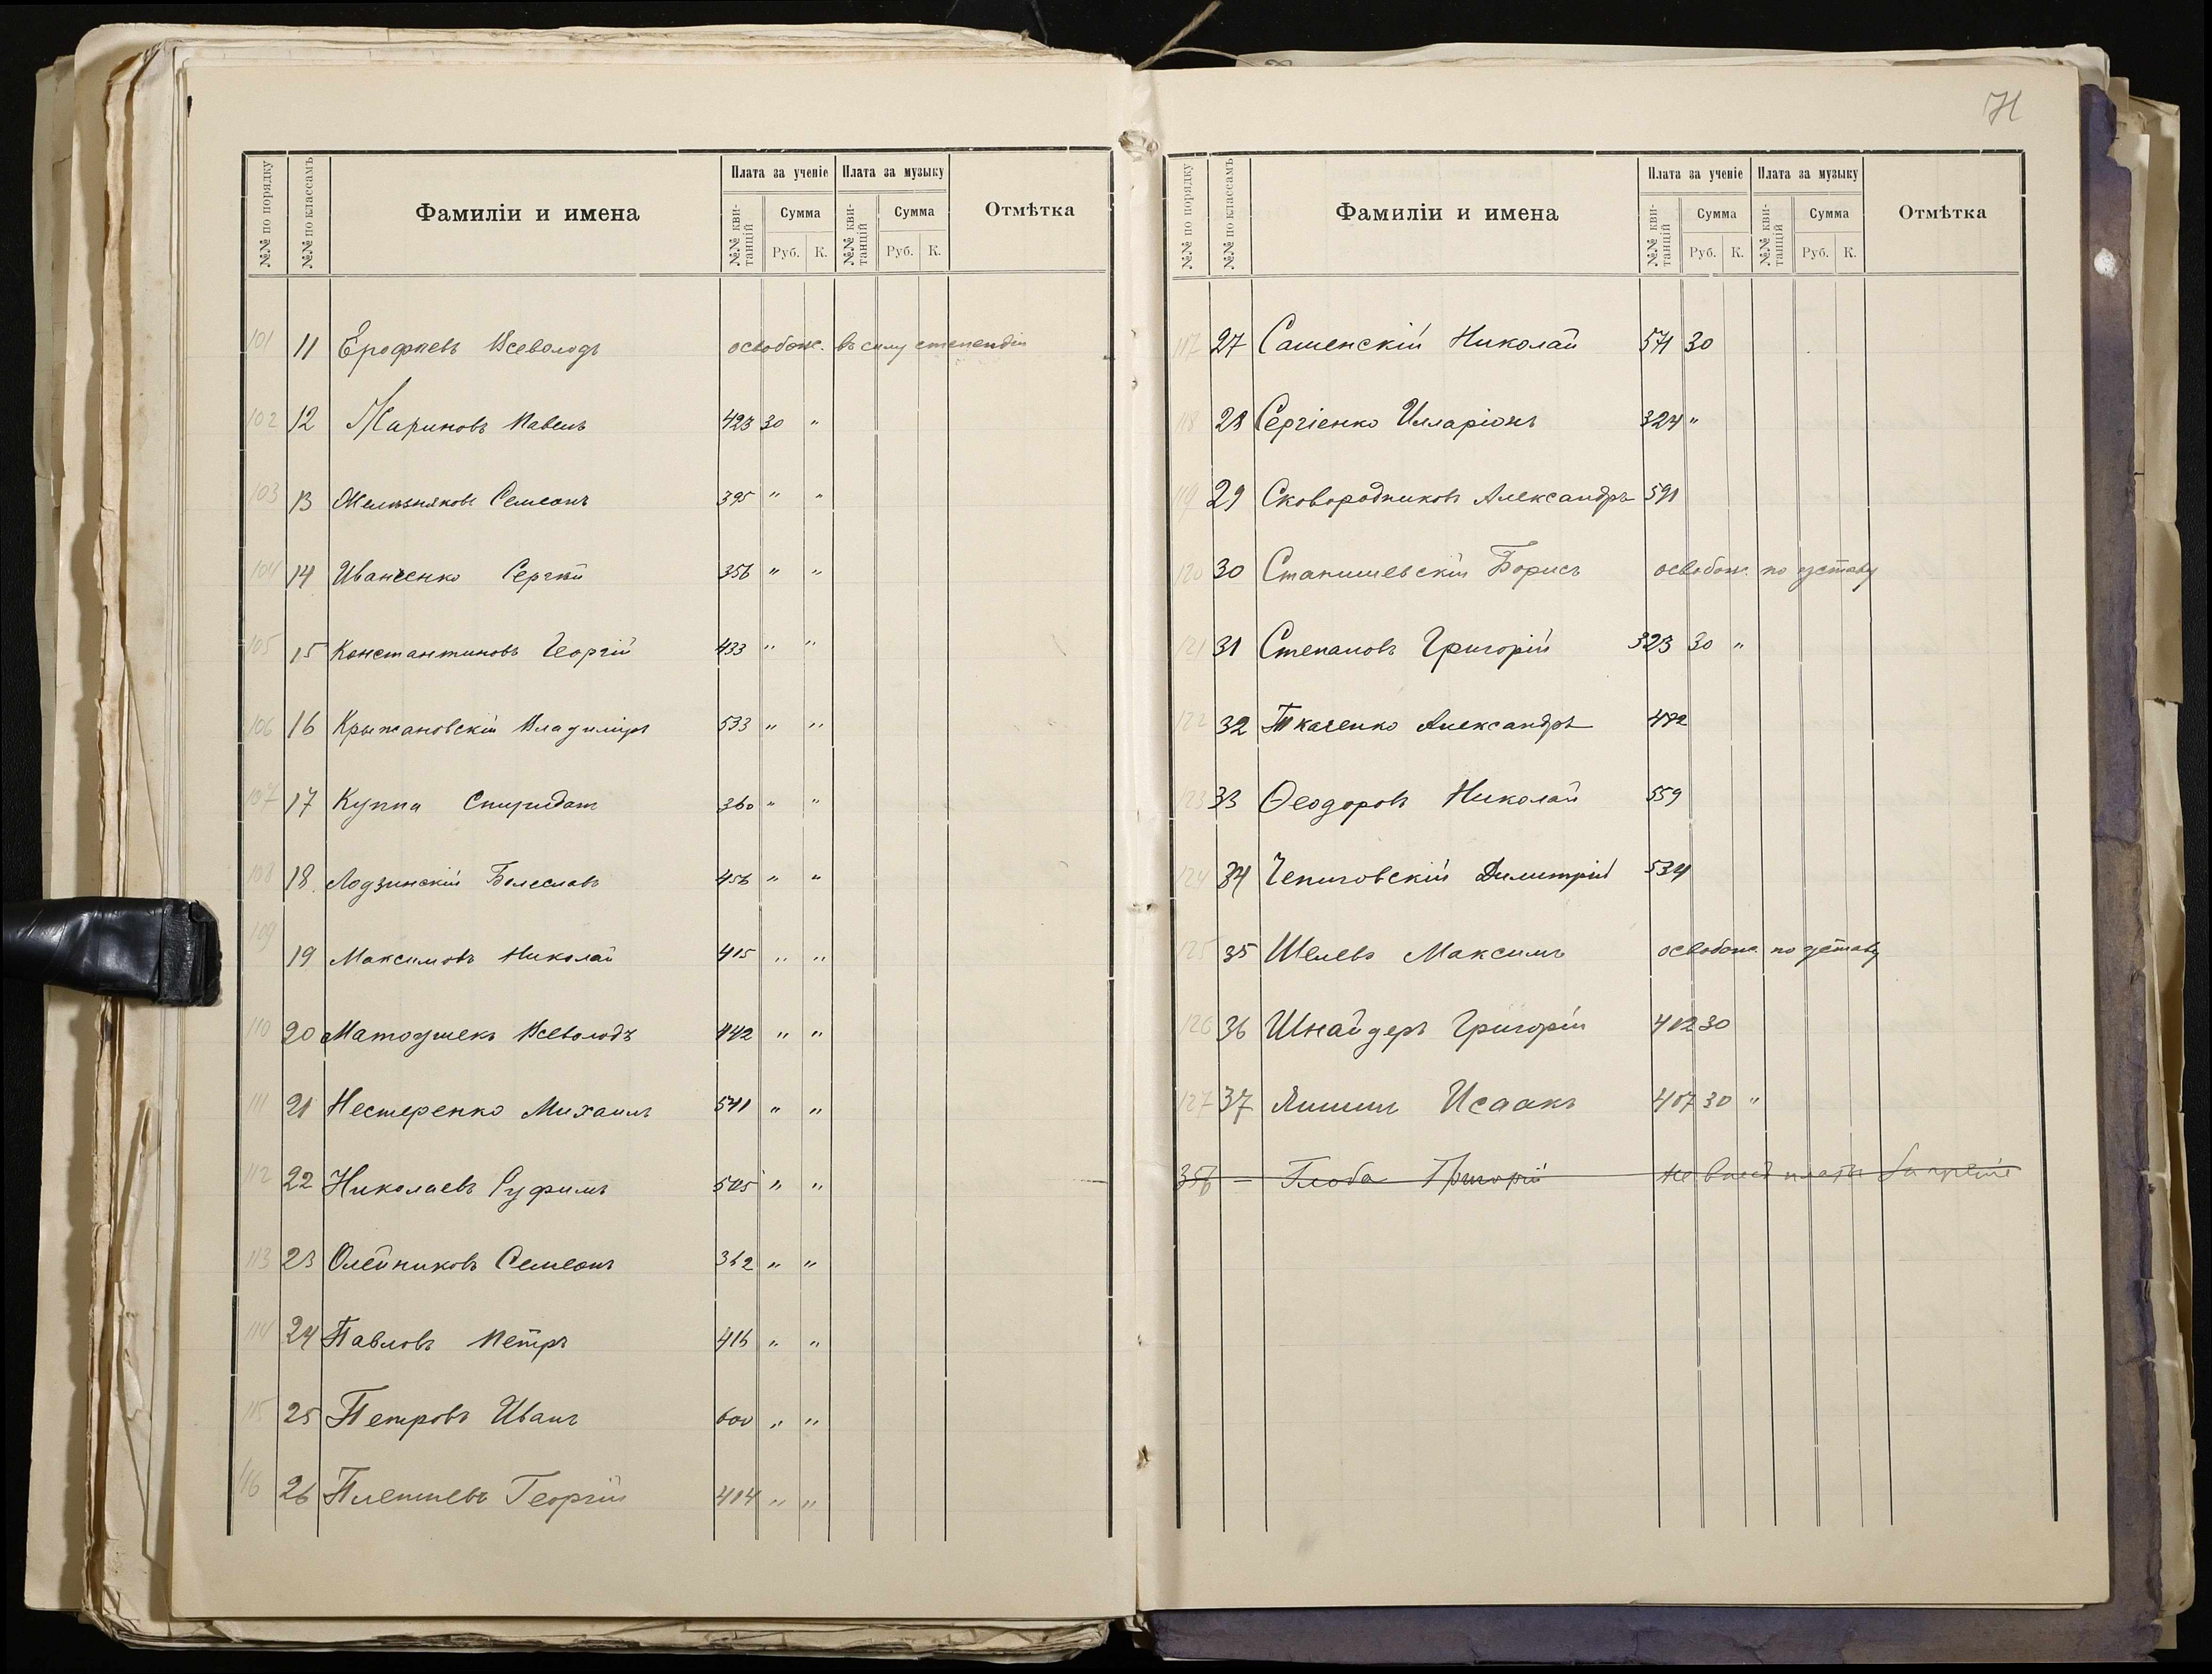 №№ по порядку №№ по классамъ Фамиліи и имена Плата за ученіе Плата за музыку Отмѣтка
№№ квитанцій Сумма №№ квитанцій Сумма
Руб. К. Руб. К.
101 11 Ерофѣевъ Всеволодъ освобож. въ силу стипендіи
102 12 Жариновъ Павелъ 423 30 "
103 13 Желѣзняковъ Семеонъ 395 " "
104 14 Иваненко Сергѣй 356 " "
105 15 Константиновъ Георгій 433 " "
106 16 Крыжановскій Владиміръ 533 " "
107 17 Куппа Спиридонъ 360 " "
108 18. Лодзинскій Болеславъ 456 " "
109 19 Максимовъ Николай 415 " "
110 20 Матоушекъ Всеволодъ 442 " "
111 21 Нестеренко Михаилъ 541 " "
112 22 Николаевъ Руфимъ 505 " "
113 23 Олейниковъ Семеонъ 362 " "
114 24 Павловъ Петръ 416 " "
115 25 Петровъ Иванъ 600 " "
116 26 Плетневъ Георгій 404 " "
71
№№ по порядку №№ по классамъ Фамиліи и имена Плата за ученіе Плата за музыку Отмѣтка
№№ квитанцій Сумма №№ квитанцій Сумма
Руб. К. Руб. К.
117 27 Сашенскій Николай 571 30
118 28 Сергіенко Илларіонъ 324 "
119 29 Сковородниковъ Александръ 591
120 30 Станишевскій Борисъ освобож. по уставу
121 31 Степановъ Григорій 323 30 "
122 32 Ткаченко Александръ 482
123 33 Ѳеодоровъ Николай 559
124 34 Чепиговскій Димитрій 534
125 35 Шелевъ Максимъ освобож. по уставу
126 36 Шнайдеръ Григорій 402 30
127 37 Яншинъ Исаакъ 407 30 "
356 — Глоба Григорій не внес платы